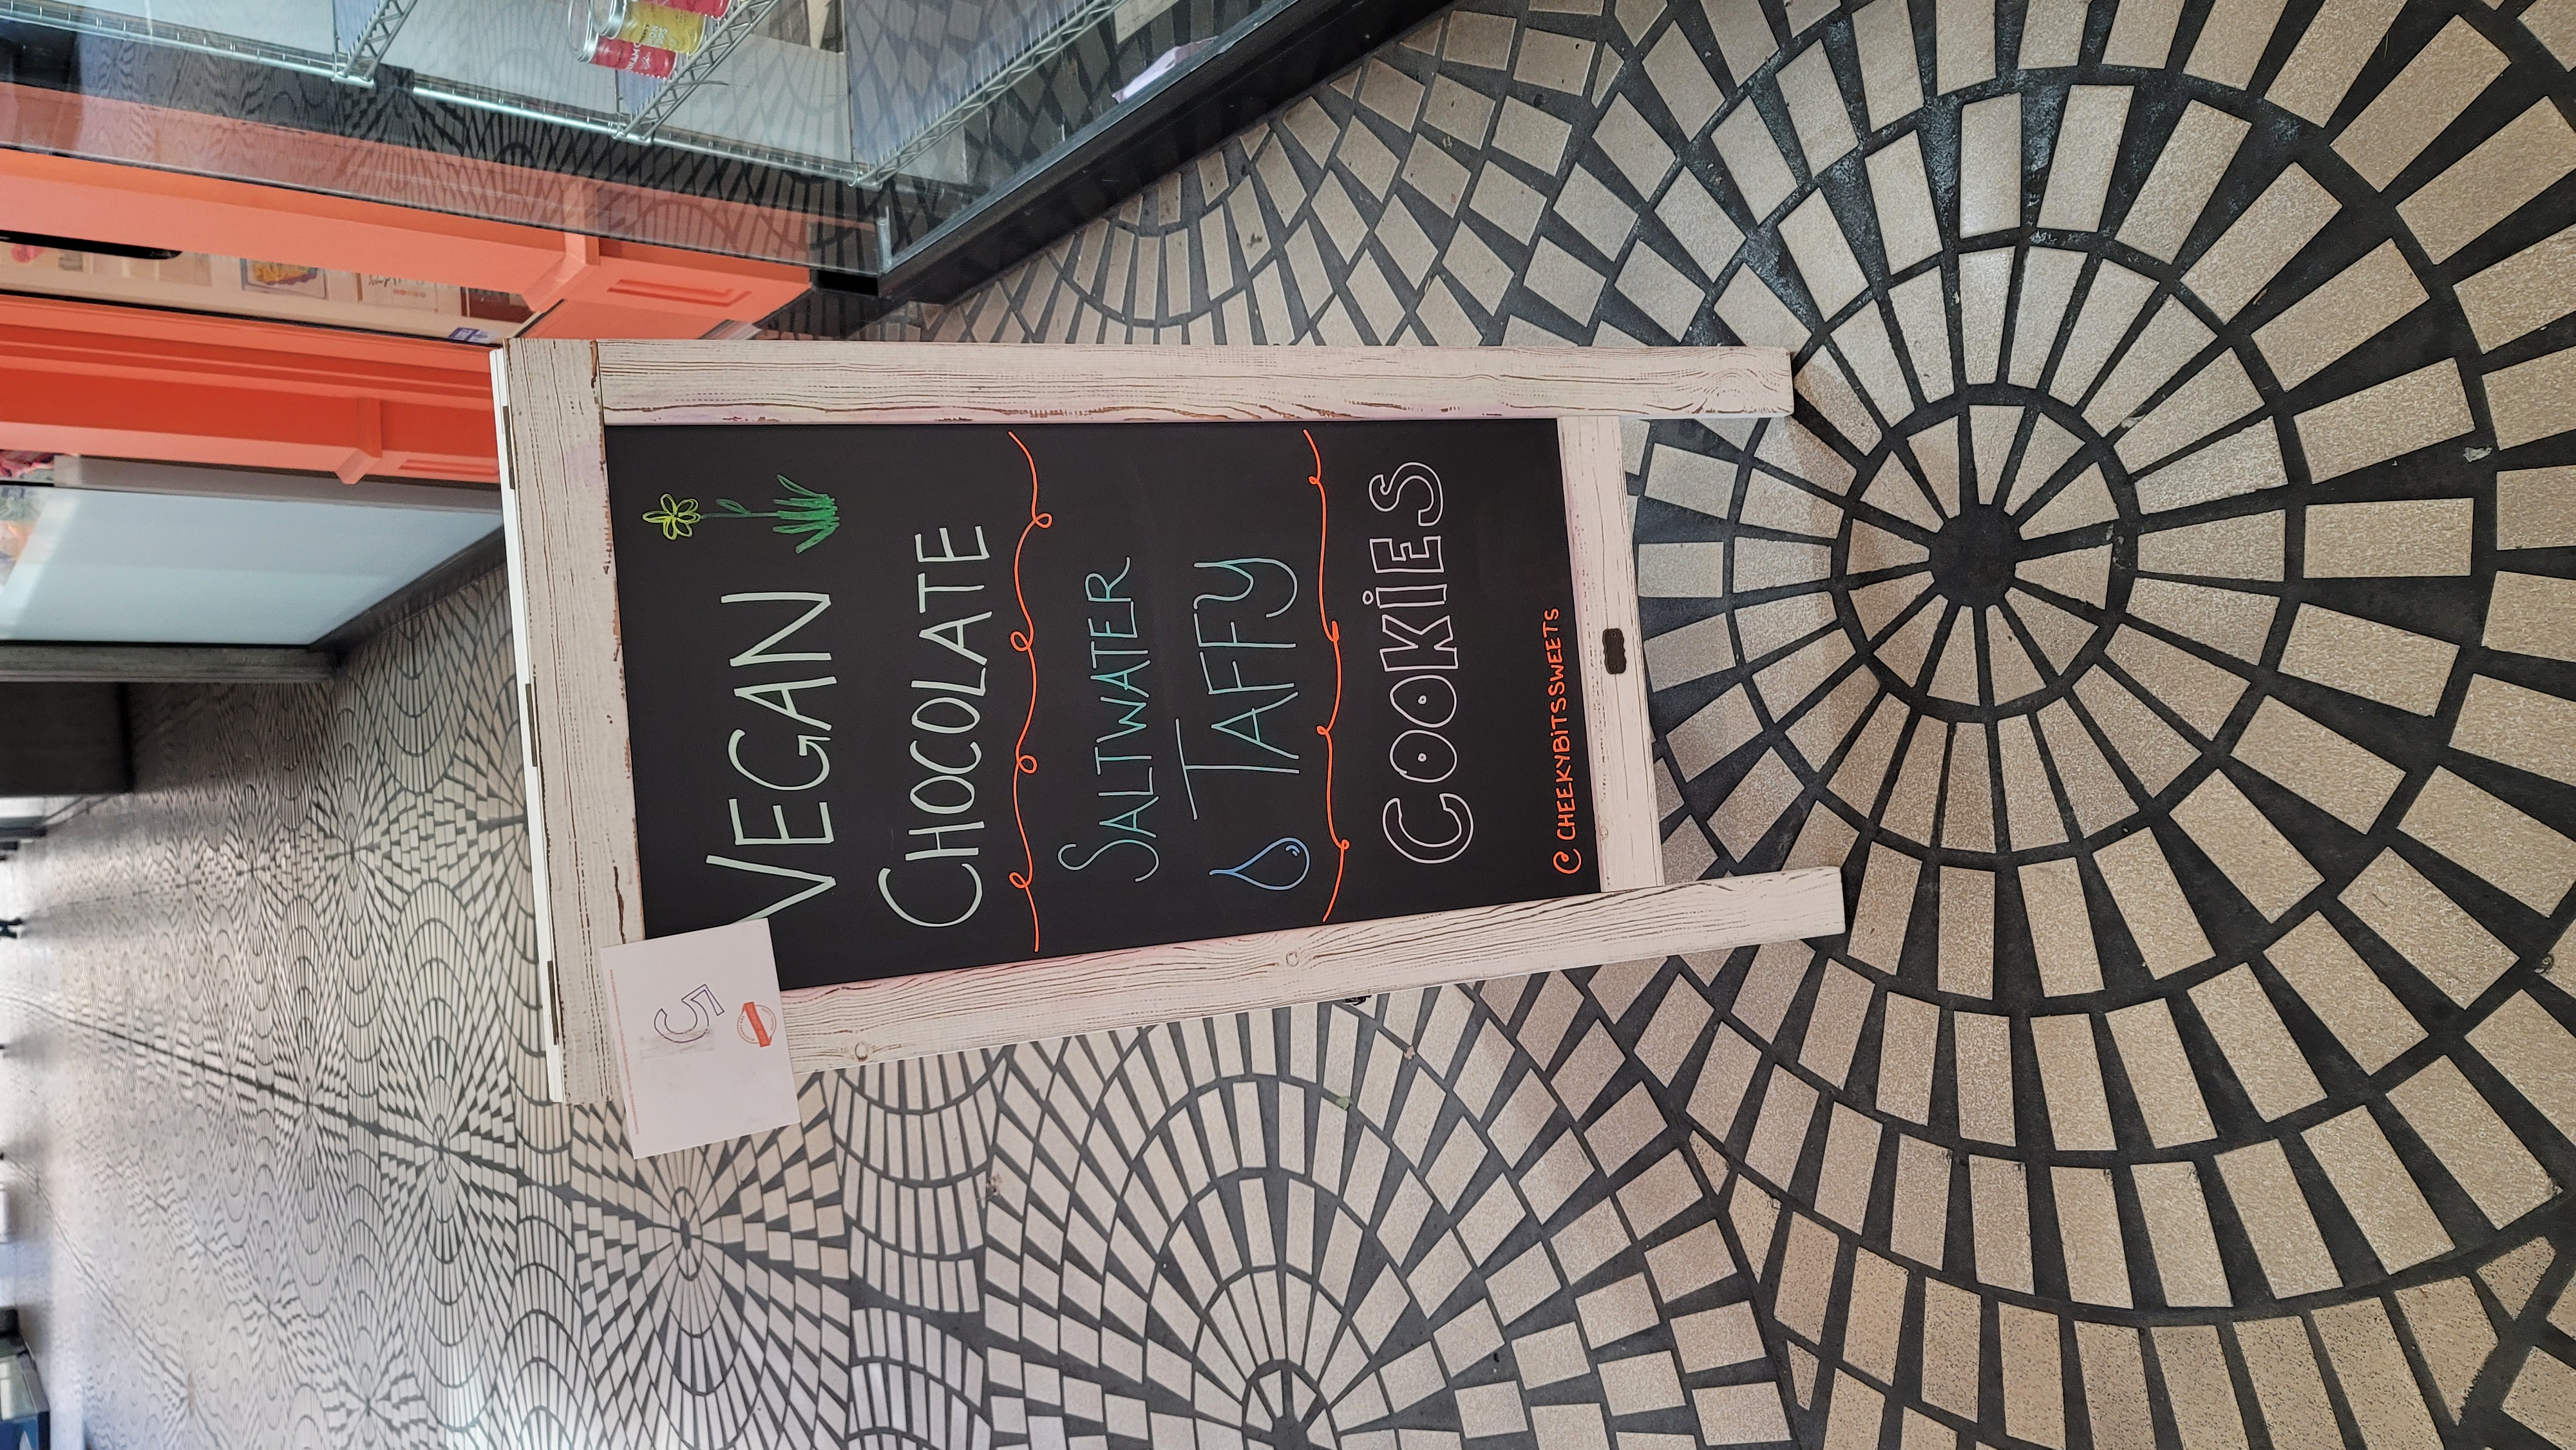 VEGAN
CHOCOLATE
SALTWATER
TAFFY
COOKIES
@CHEEKYBITSSWEETS
5